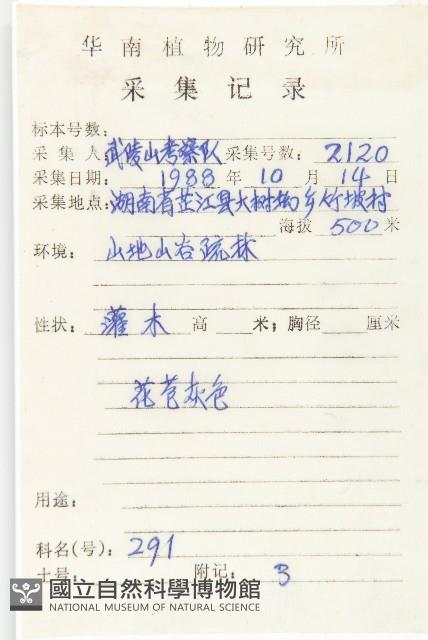 华南植物研究所
采集记录
标本号数:
采集人 武陵山考察队 采集号数: 2120
采集日期: 1988 年 10 月 14 日
采集地点: 湖南省芷江县大树坳乡竹坡村
海拔 500 米
环境: 山地山谷疏林
性状: 灌木 高 米; 胸径 厘米
花苞灰色
用途:
科名(号): 291
土号: 附记: 3
國立自然科學博物館
NATIONAL MUSEUM OF NATURAL SCIENCE